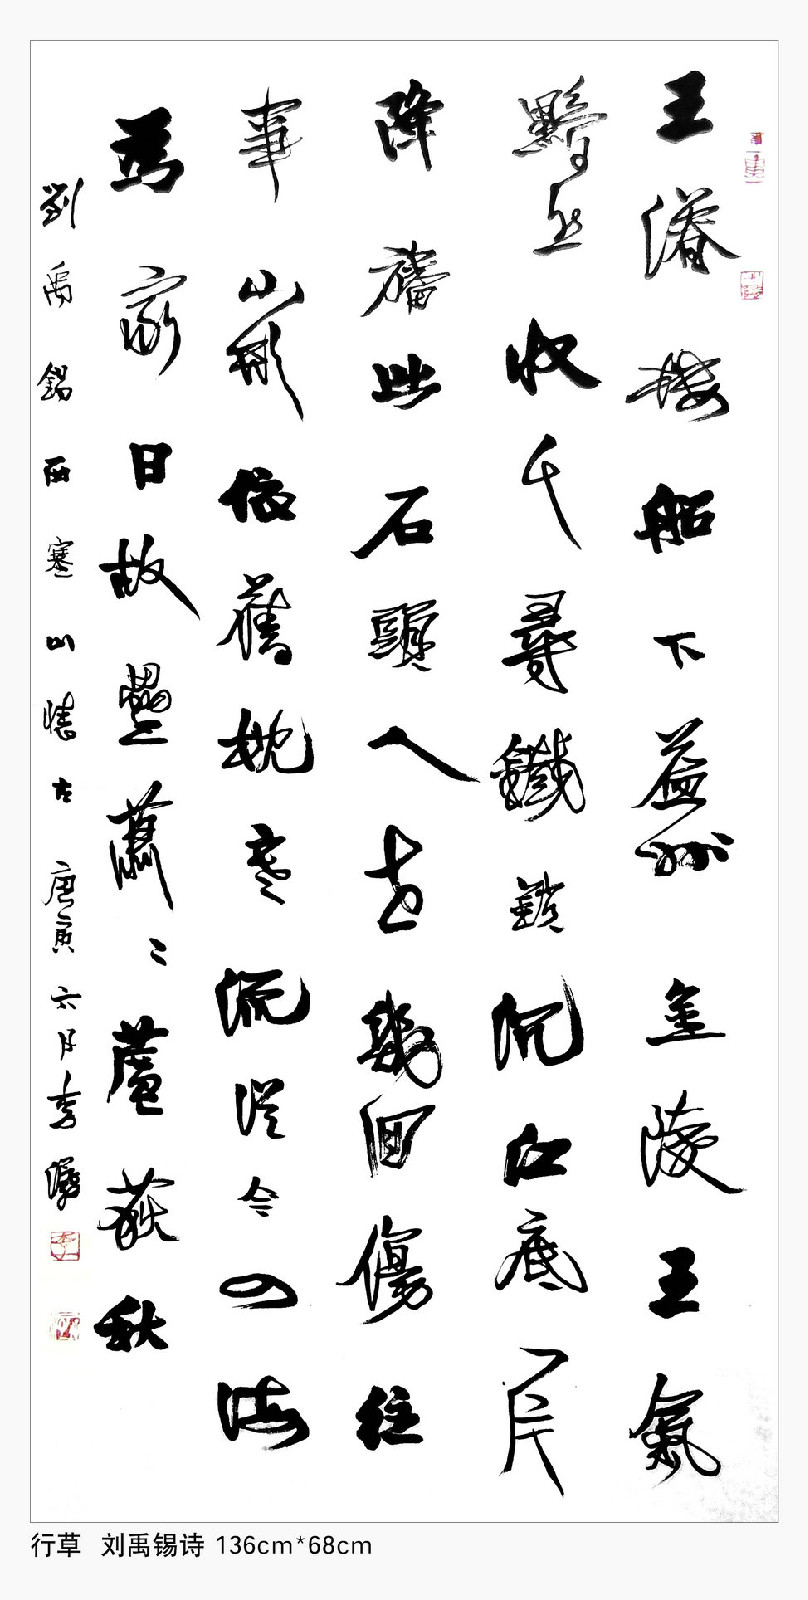 王濬樓船下益州金陵王氣
黯然收千尋鐵鎖沉江底一片
降旛出石頭人世幾回傷往
事山形依舊枕寒流從今四海
為家日故壘蕭〻蘆荻秋
劉禹錫西塞山懷古 庚寅六月李
行草 刘禹锡诗 136cm*68cm